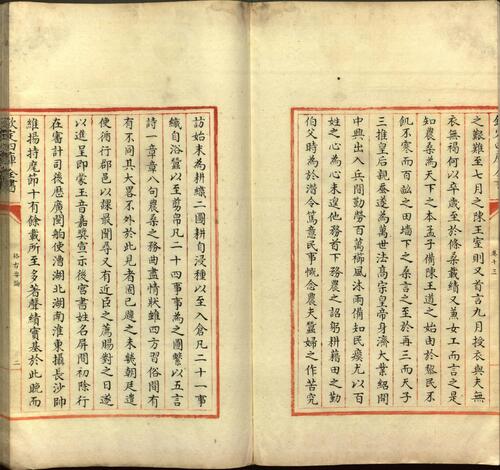 之艱難至七月之陳王室則又首言九月授衣與夫無
衣無褐何以卒歲至於條桑載績又蒹女工而言之是
知農桑為天下之本孟子備陳王道之始由於黎民不
飢不寒而百畝之田牆下之桑言之至於再三而天子
三推皇后親蠶遂為萬世法高宗皇帝身濟大業紹開
中興出入兵間勤勞百為櫛風沐雨備知民瘼尤以百
姓之心為心未遑他務首下務農之詔躬耕籍田之勤
伯父時為於潛令篤意民事慨念農夫蠶婦之作苦究
訪始末為耕織二圖耕自浸種以至入倉凡二十一事
織自浴蠶以至剪帛凡二十四事事為之圖繫以五言
詩一章章八句農桑之務曲盡情狀雖四方習俗間有
有不同其大畧不外於此見者固已韙之未幾朝廷遣
使循行郡邑以課最聞尋又有近臣之薦賜對之日遂
以進呈即蒙玉音嘉奬宣示後宮書姓名屏間初除行
在審計司後歷廣閩舶使漕湖北湖南淮東攝長沙帥
維揚持麾節十有餘載所至多著聲績實基於此晚而
卷十三
欽定四庫全書
格古要論
二